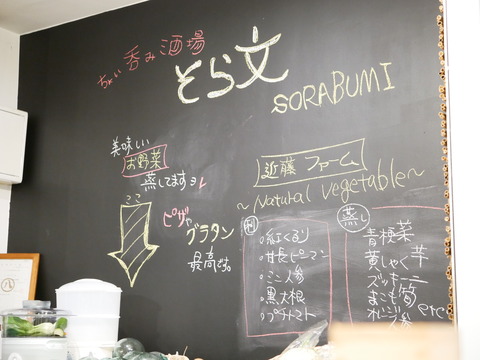 ちょい呑み酒場
そら文
SORABUMI
美味しい
お野菜
蒸してます
ココ
ピザ
グラタン
最高です。
近藤 ファーム
~Natural vegetable~
・紅くるり
・甘長ピーマン
・ミニ人参
・黒大根
・プチトマト
蒸し
青梗菜
黄しゃく芋
ズッキーニ
まこも筍
etc